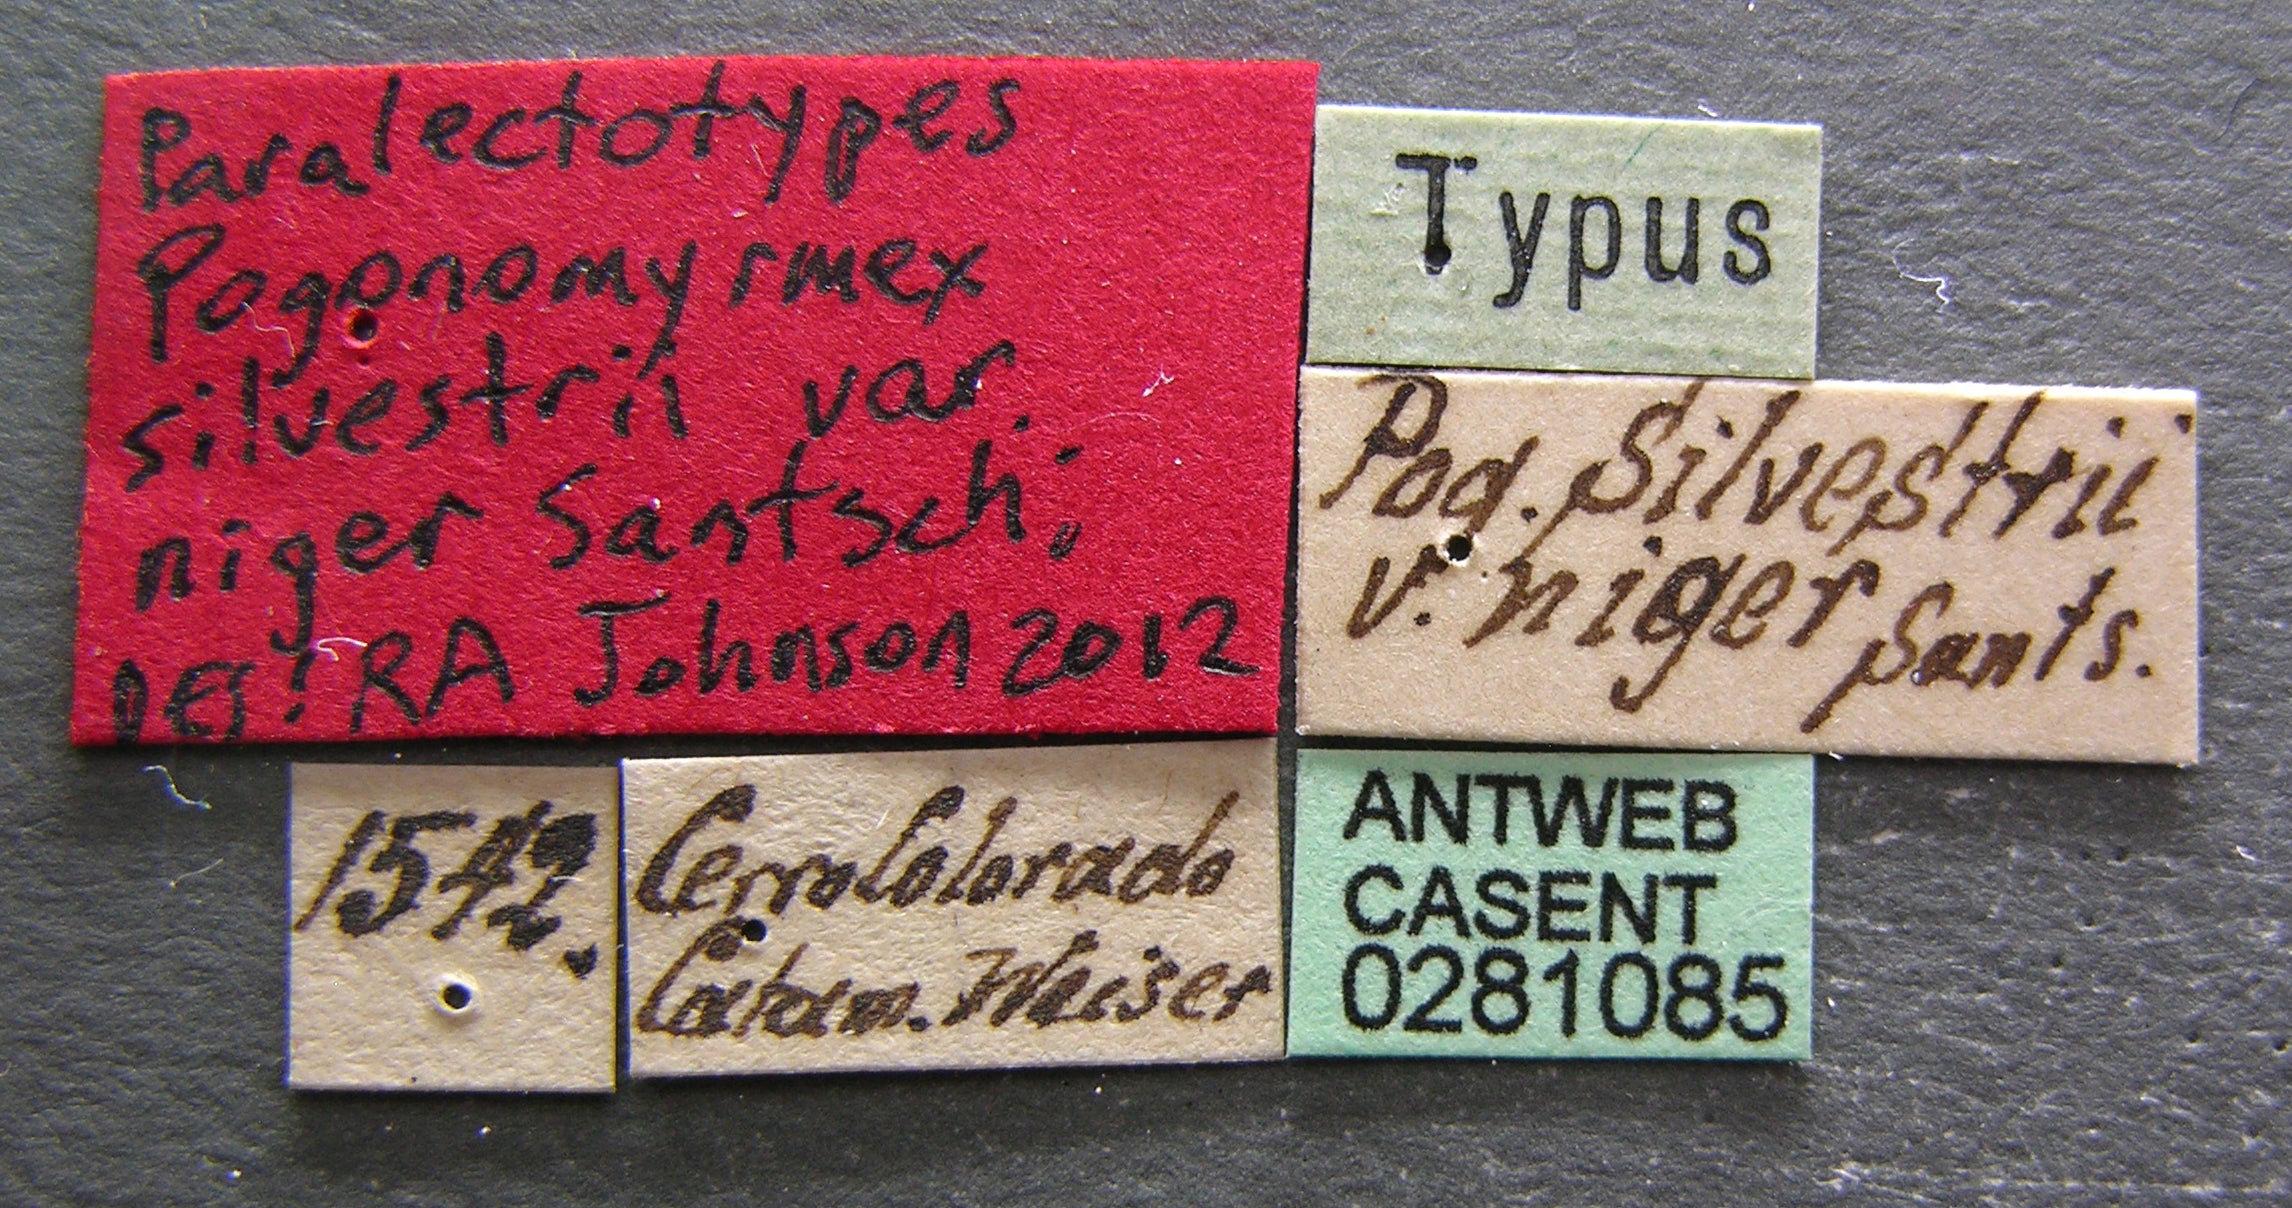 Paralectotypes
Pogonomyrmex
silvestrii var.
niger Santschi;
DES: RA Johnson 2012
Typus
Pog. Silvestrii
v. niger Sants.
1542.
Cerro Colorado
Catam. Weiser
ANTWEB
CASENT
0281085